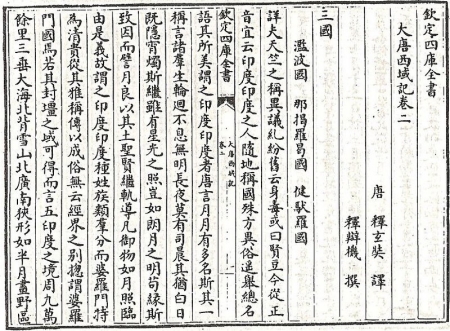 欽定四庫全書
大唐西域記卷二
唐 釋玄奘 譯
釋辯機 撰
三國
濫波國 那揭羅曷國 健馱羅國
詳夫天竺之稱異議糺紛舊云身毒或曰賢豆今從正
音宜云印度印度之人隨地稱國殊方異俗遙舉總名
欽定四庫全書
大唐西域記
卷二
一
語其所美謂之印度印度者唐言月月有多名斯其一
稱言諸羣生輪迴不息無明長夜莫有司晨其猶白日
既隱宵燭斯繼雖有星光之照豈如朗月之明苟緣斯
致因而譬月良以其土聖賢繼軌導凡御物如月照臨
由是義故謂之印度印度種姓族類羣分而婆羅門特
為清貴從其雅稱傳以成俗無云經界之別揔謂婆羅
門國焉若其封壃之域可得而言五印度之境周九萬
餘里三垂大海北背雪山北廣南狹形如半月畫野區